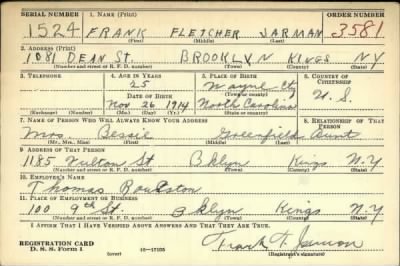 SERIAL NUMBER 1. NAME (Print) ORDER NUMBER
1524 FRANK FLETCHER JARMAN 3581
(First) (Middle) (Last)
2. ADDRESS (Print)
1081 DEAN ST. BROOKLYN KINGS NY
(Number and street or R. F. D. number) (Town) (County) (State)
3. TELEPHONE 4. AGE IN YEARS 5. PLACE OF BIRTH 6. COUNTRY OF CITIZENSHIP
25 Wayne Cty
DATE OF BIRTH (Town or county)
Nov 26 1914 North Carolina U.S.
(Exchange) (Number) (Mo.) (Day) (Yr.) (State or country)
7. NAME OF PERSON WHO WILL ALWAYS KNOW YOUR ADDRESS 8. RELATIONSHIP OF THAT PERSON
Mrs. Bessie Greenfield Aunt
(Mr., Mrs., Miss) (First) (Middle) (Last)
9. ADDRESS OF THAT PERSON
1185 Fulton St Bklyn Kings N.Y
(Number and street or R. F. D. number) (Town) (County) (State)
10. EMPLOYER'S NAME
Thomas
11. PLACE OF EMPLOYMENT OR BUSINESS
100 9th St. Bklyn Kings N.Y
(Number and street or R. F. D. number) (Town) (County) (State)
I AFFIRM THAT I HAVE VERIFIED ABOVE ANSWERS AND THAT THEY ARE TRUE.
REGISTRATION CARD
D. S. S. Form 1 (over) 16—17105 Frank F. Jarman
(Registrant's signature)